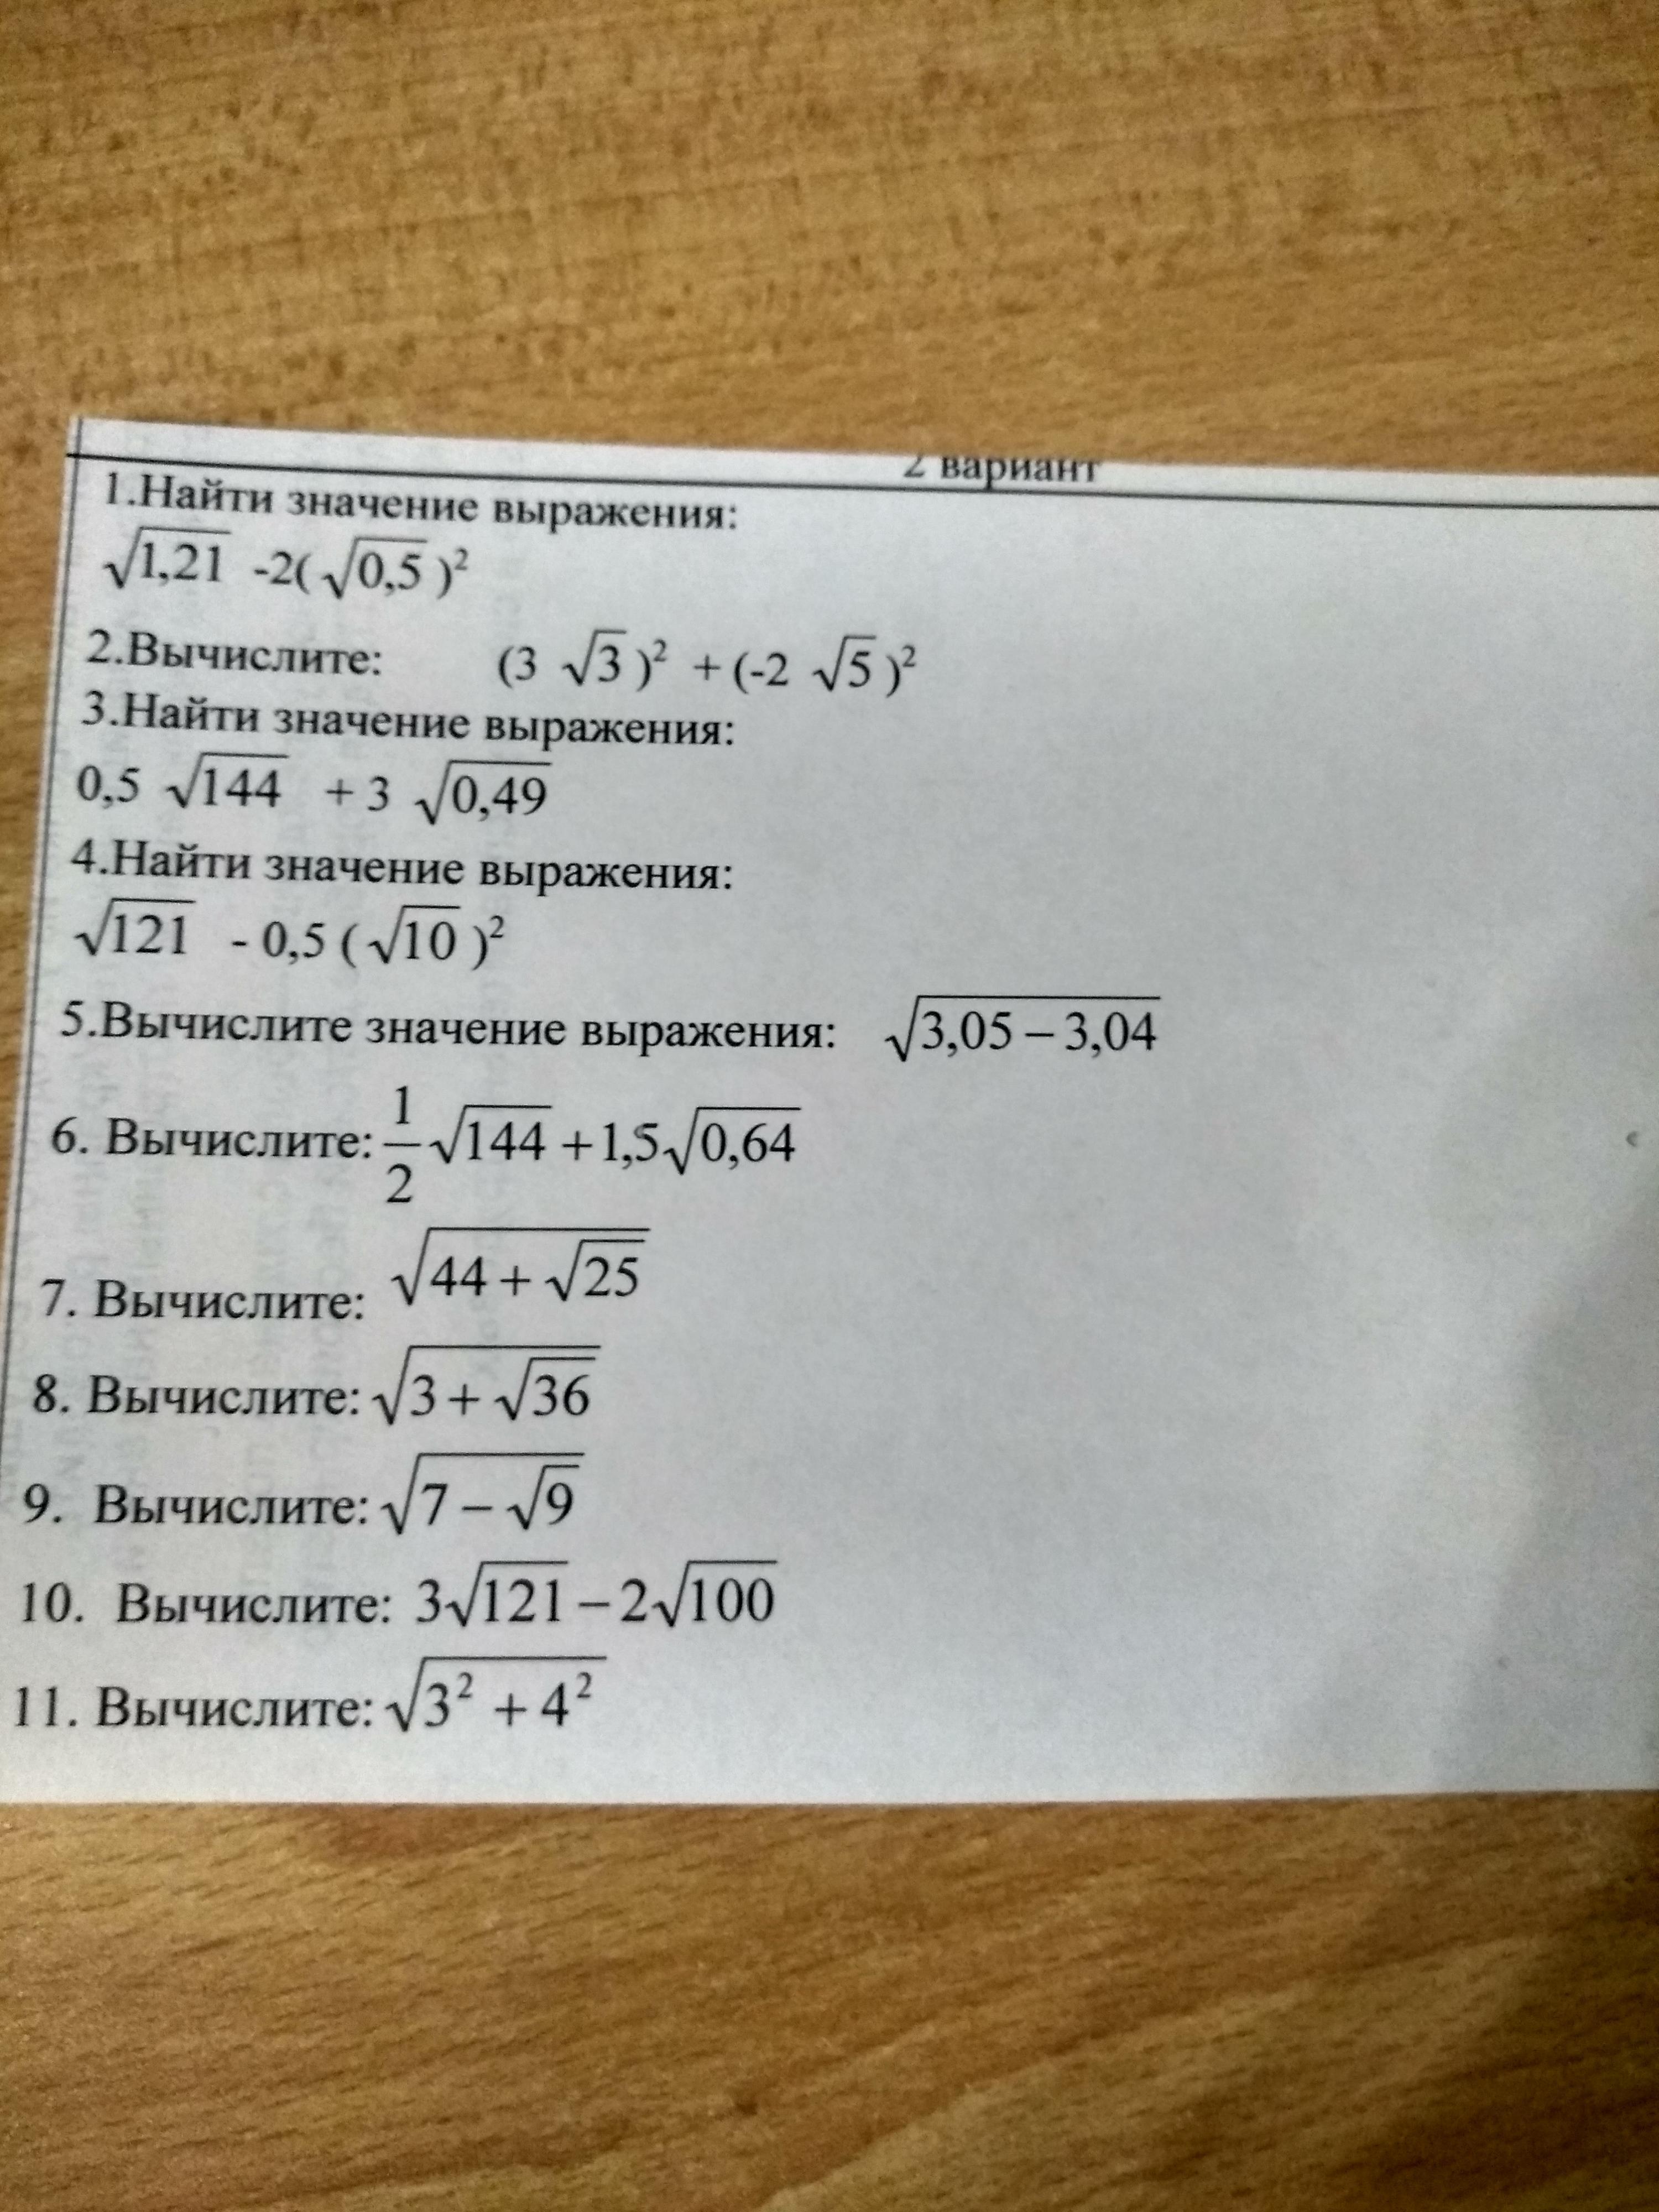 2 вариант
1.Найти значение выражения:
√1,21 -2( √0,5 )²
2.Вычислите: (3 √3 )² + (-2 √5 )²
3.Найти значение выражения:
0,5 √144 + 3 √0,49
4.Найти значение выражения:
√121 - 0,5 ( √10 )²
5.Вычислите значение выражения: √(3,05 – 3,04)
6. Вычислите: 1/2 √144 + 1,5√0,64
7. Вычислите: √(44 + √25)
8. Вычислите: √(3 + √36)
9. Вычислите: √(7 – √9)
10. Вычислите: 3√121 – 2√100
11. Вычислите: √(3² + 4²)